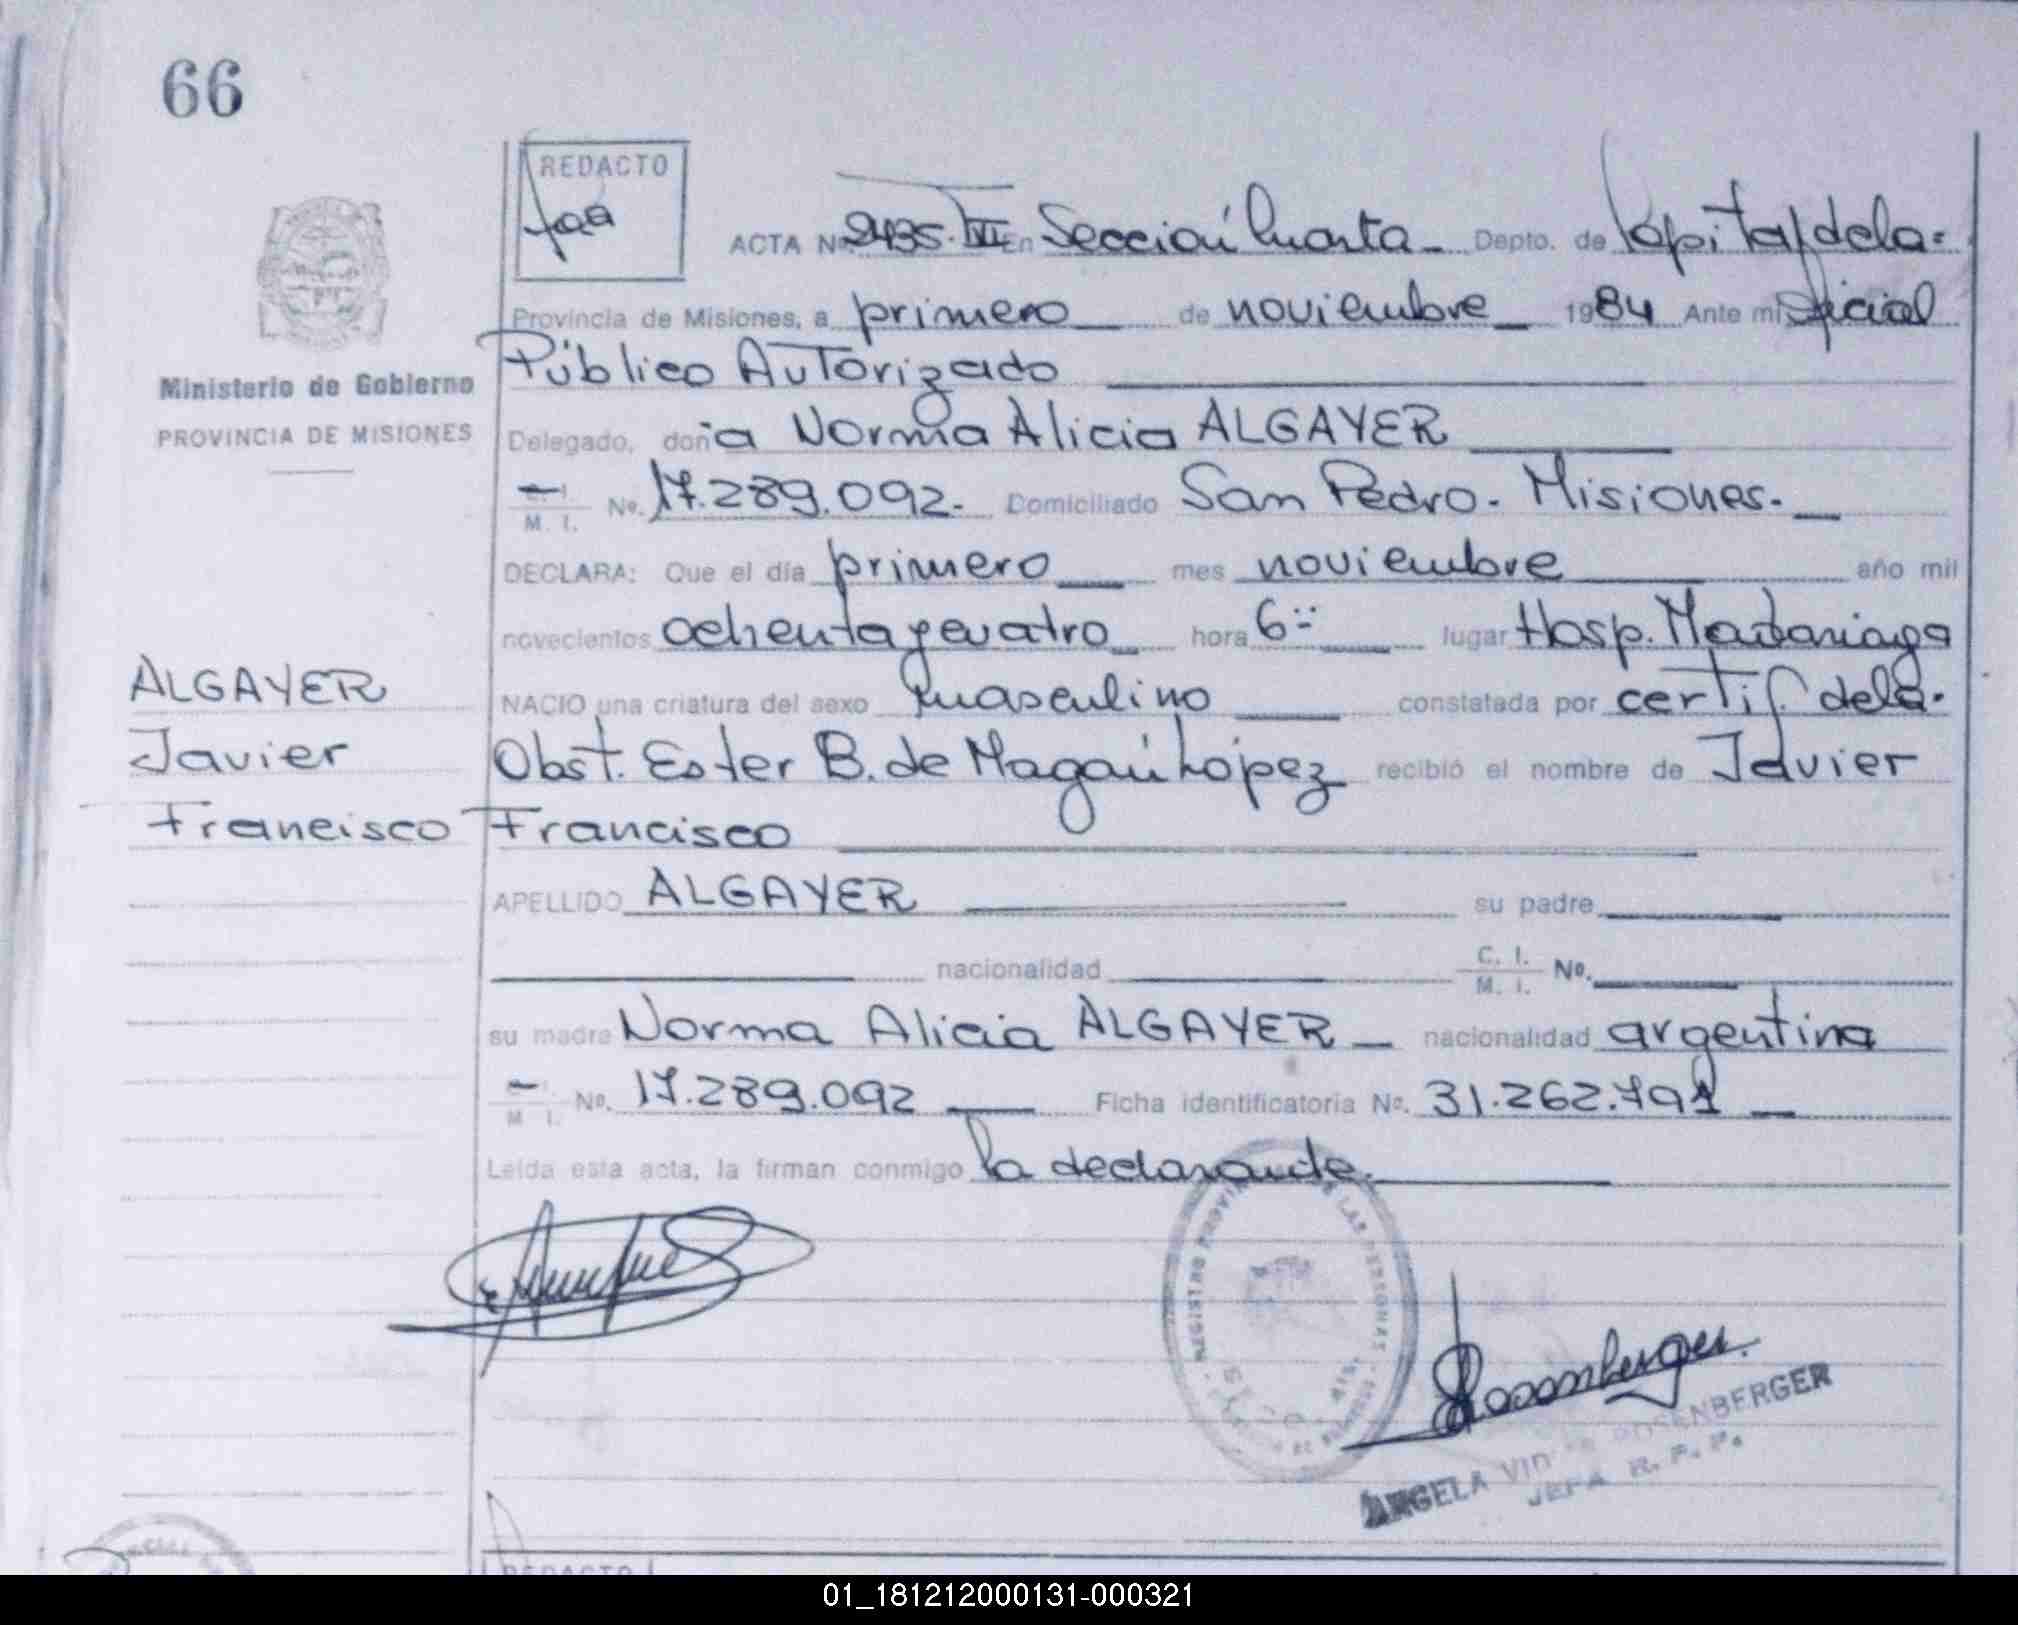 66
REDACTO
ACTA Nº 2435. VII En Sección Cuarta Depto. de Capital dela=
Provincia de Misiones, a primero de noviembre 1984 Ante mi Oficial
Público Autorizado
Ministerio de Gobierno
PROVINCIA DE MISIONES
Delegado, doña Norma Alicia ALGAYER
M. I. No. 17.289.092. Domiciliado San Pedro. Misiones.
DECLARA: Que el día primero mes noviembre año mil
novecientos ochenta y cuatro hora 6 lugar Hosp. Madariaga
ALGAYER
NACIO una criatura del sexo masculino constatada por certif. dela.
Javier
Obst. Ester B. de Magaú López recibió el nombre de Javier
Francisco
Francisco
APELLIDO ALGAYER su padre
nacionalidad C. I. M. I. No.
su madre Norma Alicia ALGAYER nacionalidad argentina
M I. No. 17.289.092 Ficha identificatoria No. 31.262.791
Leída esta acta, la firman conmigo la declarante.
REGISTRO PROVIN LAS PERSONAS
Rosenberger
ANGELA ROSENBERGER
JEFA R. P. P.
REDACTO
01_181212000131-000321